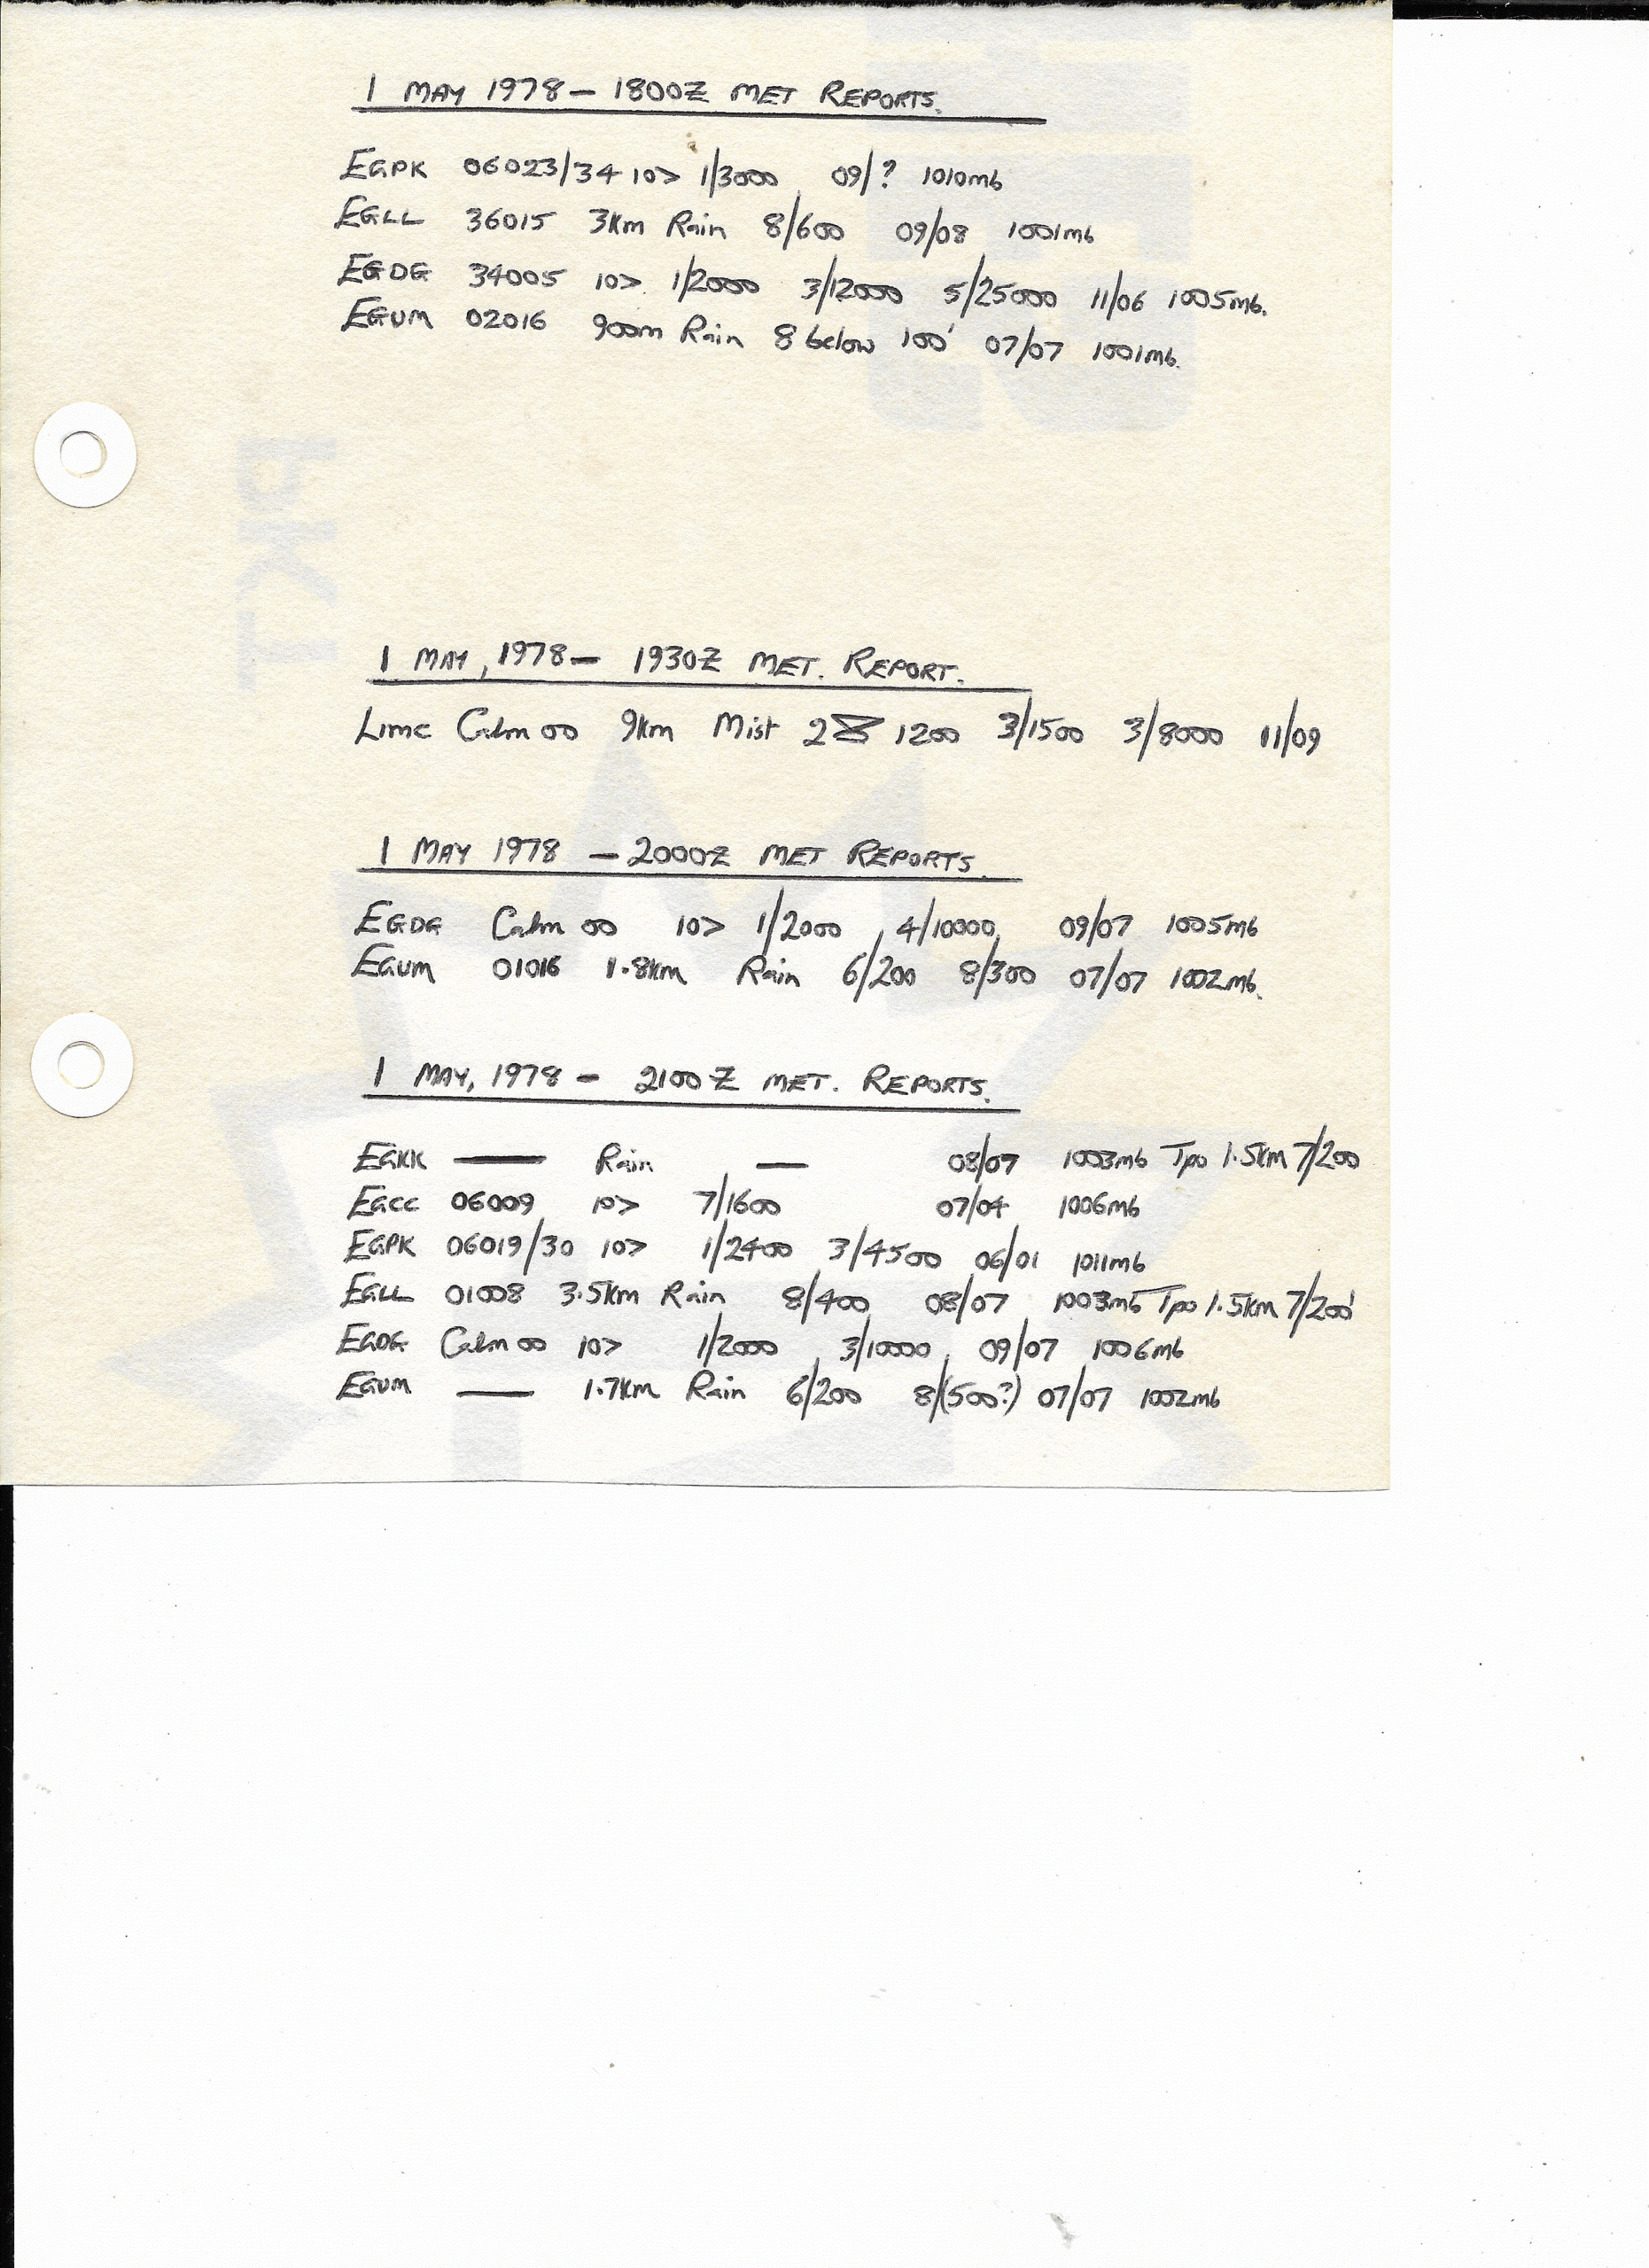 1 MAY 1978 - 1800Z MET REPORTS.
EGPK 06023/34 10> 1/3000 09/? 1010mb
EGLL 36015 3km Rain 8/600 09/08 1001mb
EGDG 34005 10> 1/2000 3/12000 5/25000 11/06 1005mb.
EGUM 02016 900m Rain 8 below 100' 07/07 1001mb.
1 MAY, 1978 - 1930Z MET. REPORT.
LIMC Calm 00 9km Mist 2 1200 3/1500 3/8000 11/09
1 MAY 1978 - 2000Z MET REPORTS.
EGDG Calm 00 10> 1/2000, 4/10000, 09/07 1005mb
EGUM 01016 1.8km Rain 6/200 8/300 07/07 1002mb.
1 MAY, 1978 - 2100Z MET. REPORTS.
EGKK — Rain — 08/07 1003mb Tpo 1.5km 7/200
EGCC 06009 10> 7/1600 07/04 1006mb
EGPK 06019/30 10> 1/2400 3/4500 06/01 1011mb
EGLL 01008 3.5km Rain 8/400 08/07 1003mb Tpo 1.5km 7/200'
EGDG Calm 00 10> 1/2000, 3/10000, 09/07 1006mb
EGUM — 1.7km Rain 6/200 8/(500?) 07/07 1002mb